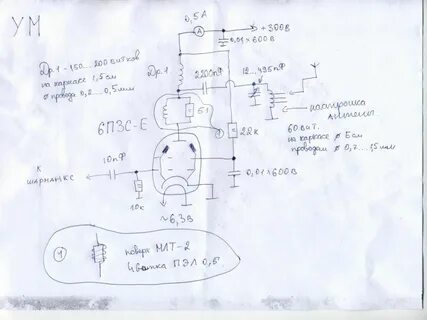 УМ
0,5А
А
+300В
0,01x600В
Др.1 - 150...200 витков
на каркасе 1,5см
ø провода 0,2...0,5мм
Др.1
2200пФ
12...495пФ
51
настройка
антенны
6П3С-Е
22к
60 вит.
на каркасе ø 5см
проводом ø 0,7...1,5мм
к
шарманке
10пФ
10к
0,01x600В
~6,3В
1
поверх МЛТ-2
4 витка ПЭЛ 0,5